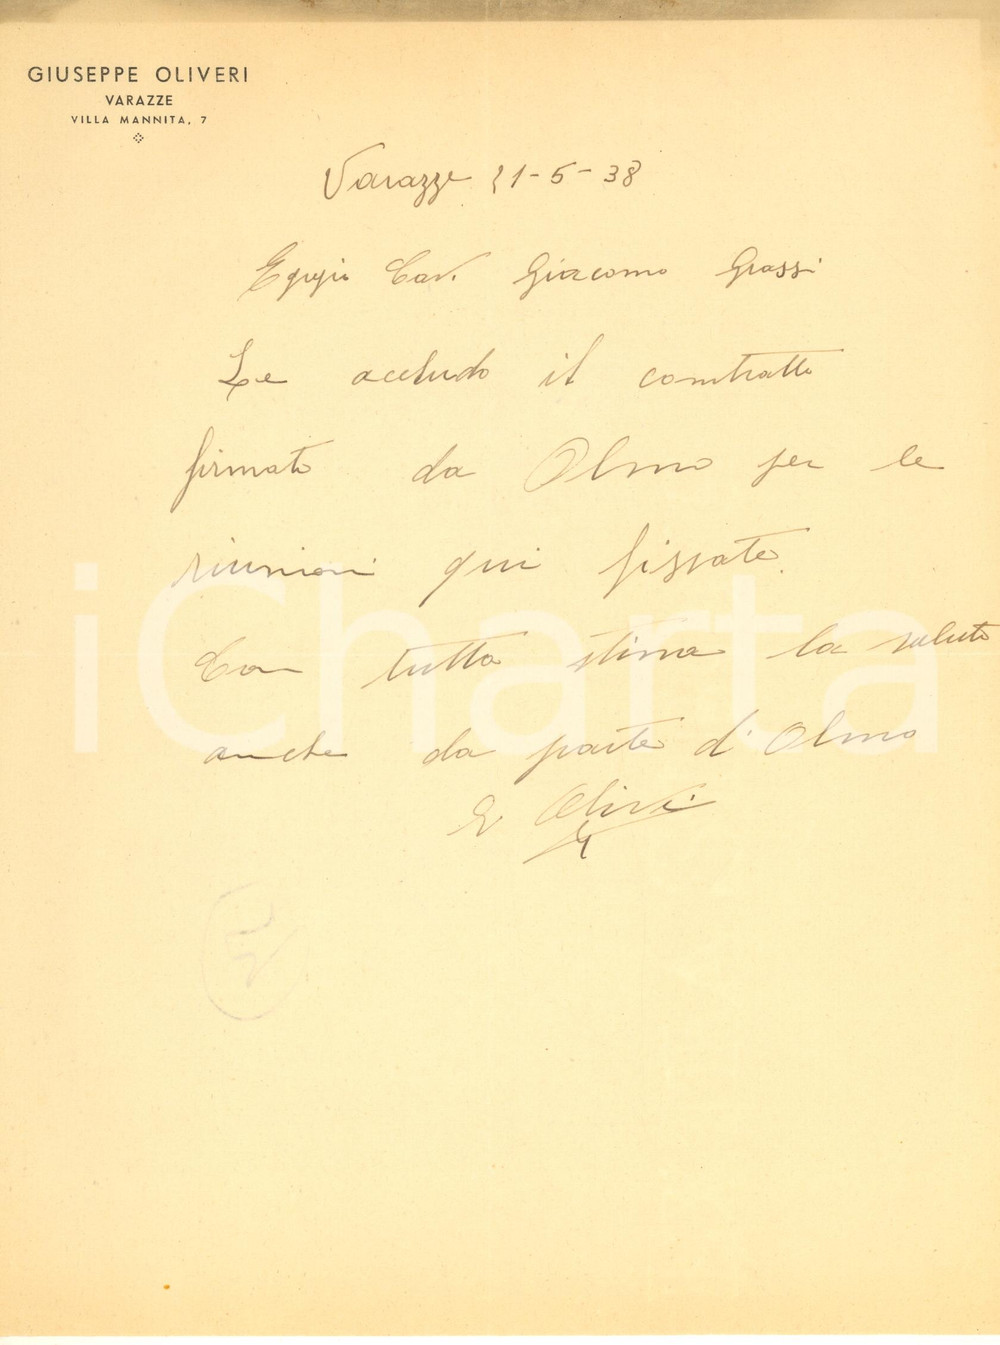 GIUSEPPE OLIVERI
VARAZZE
VILLA MANNITA, 7
Varazze 21-5-38
Egregio Cav. Giacomo Grassi
Le accludo il contratto
firmato da Olmo per le
riunioni qui fissate.
Con tutta stima la saluto
anche da parte d'Olmo
G Oliveri
iCharta